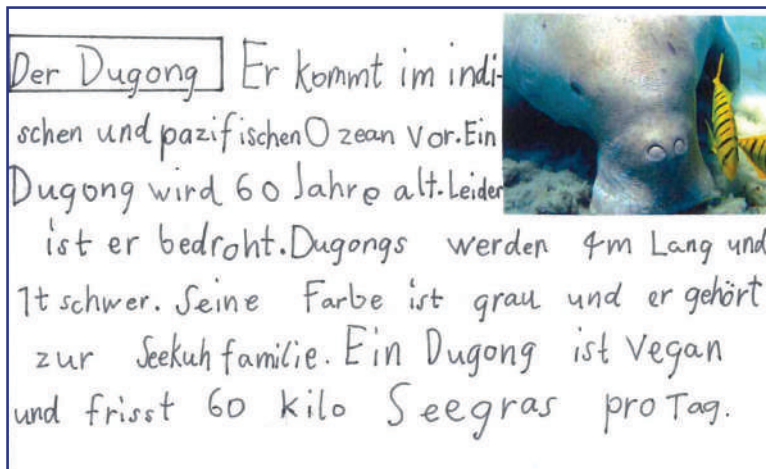 Der Dugong Er kommt im indi-
schen und pazifischen Ozean vor. Ein
Dugong wird 60 Jahre alt. Leider
ist er bedroht. Dugongs werden 4m Lang und
1t schwer. Seine Farbe ist grau und er gehört
zur Seekuhfamilie. Ein Dugong ist Vegan
und frisst 60 kilo Seegras pro Tag.